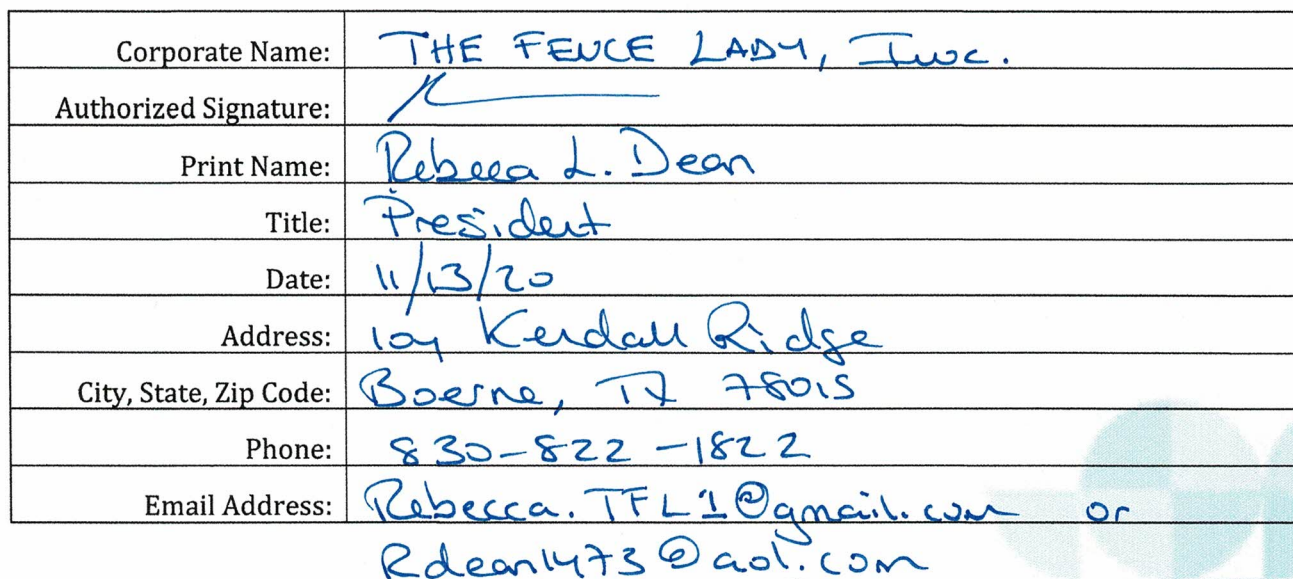 Corporate Name: THE FENCE LADY, Inc.
Authorized Signature:
Print Name: Rebecca L. Dean
Title: President
Date: 11/13/20
Address: 104 Kendall Ridge
City, State, Zip Code: Boerne, TX 78015
Phone: 830-822-1822
Email Address: Rebecca.TFL1@gmail.com or
Rdean1473@aol.com